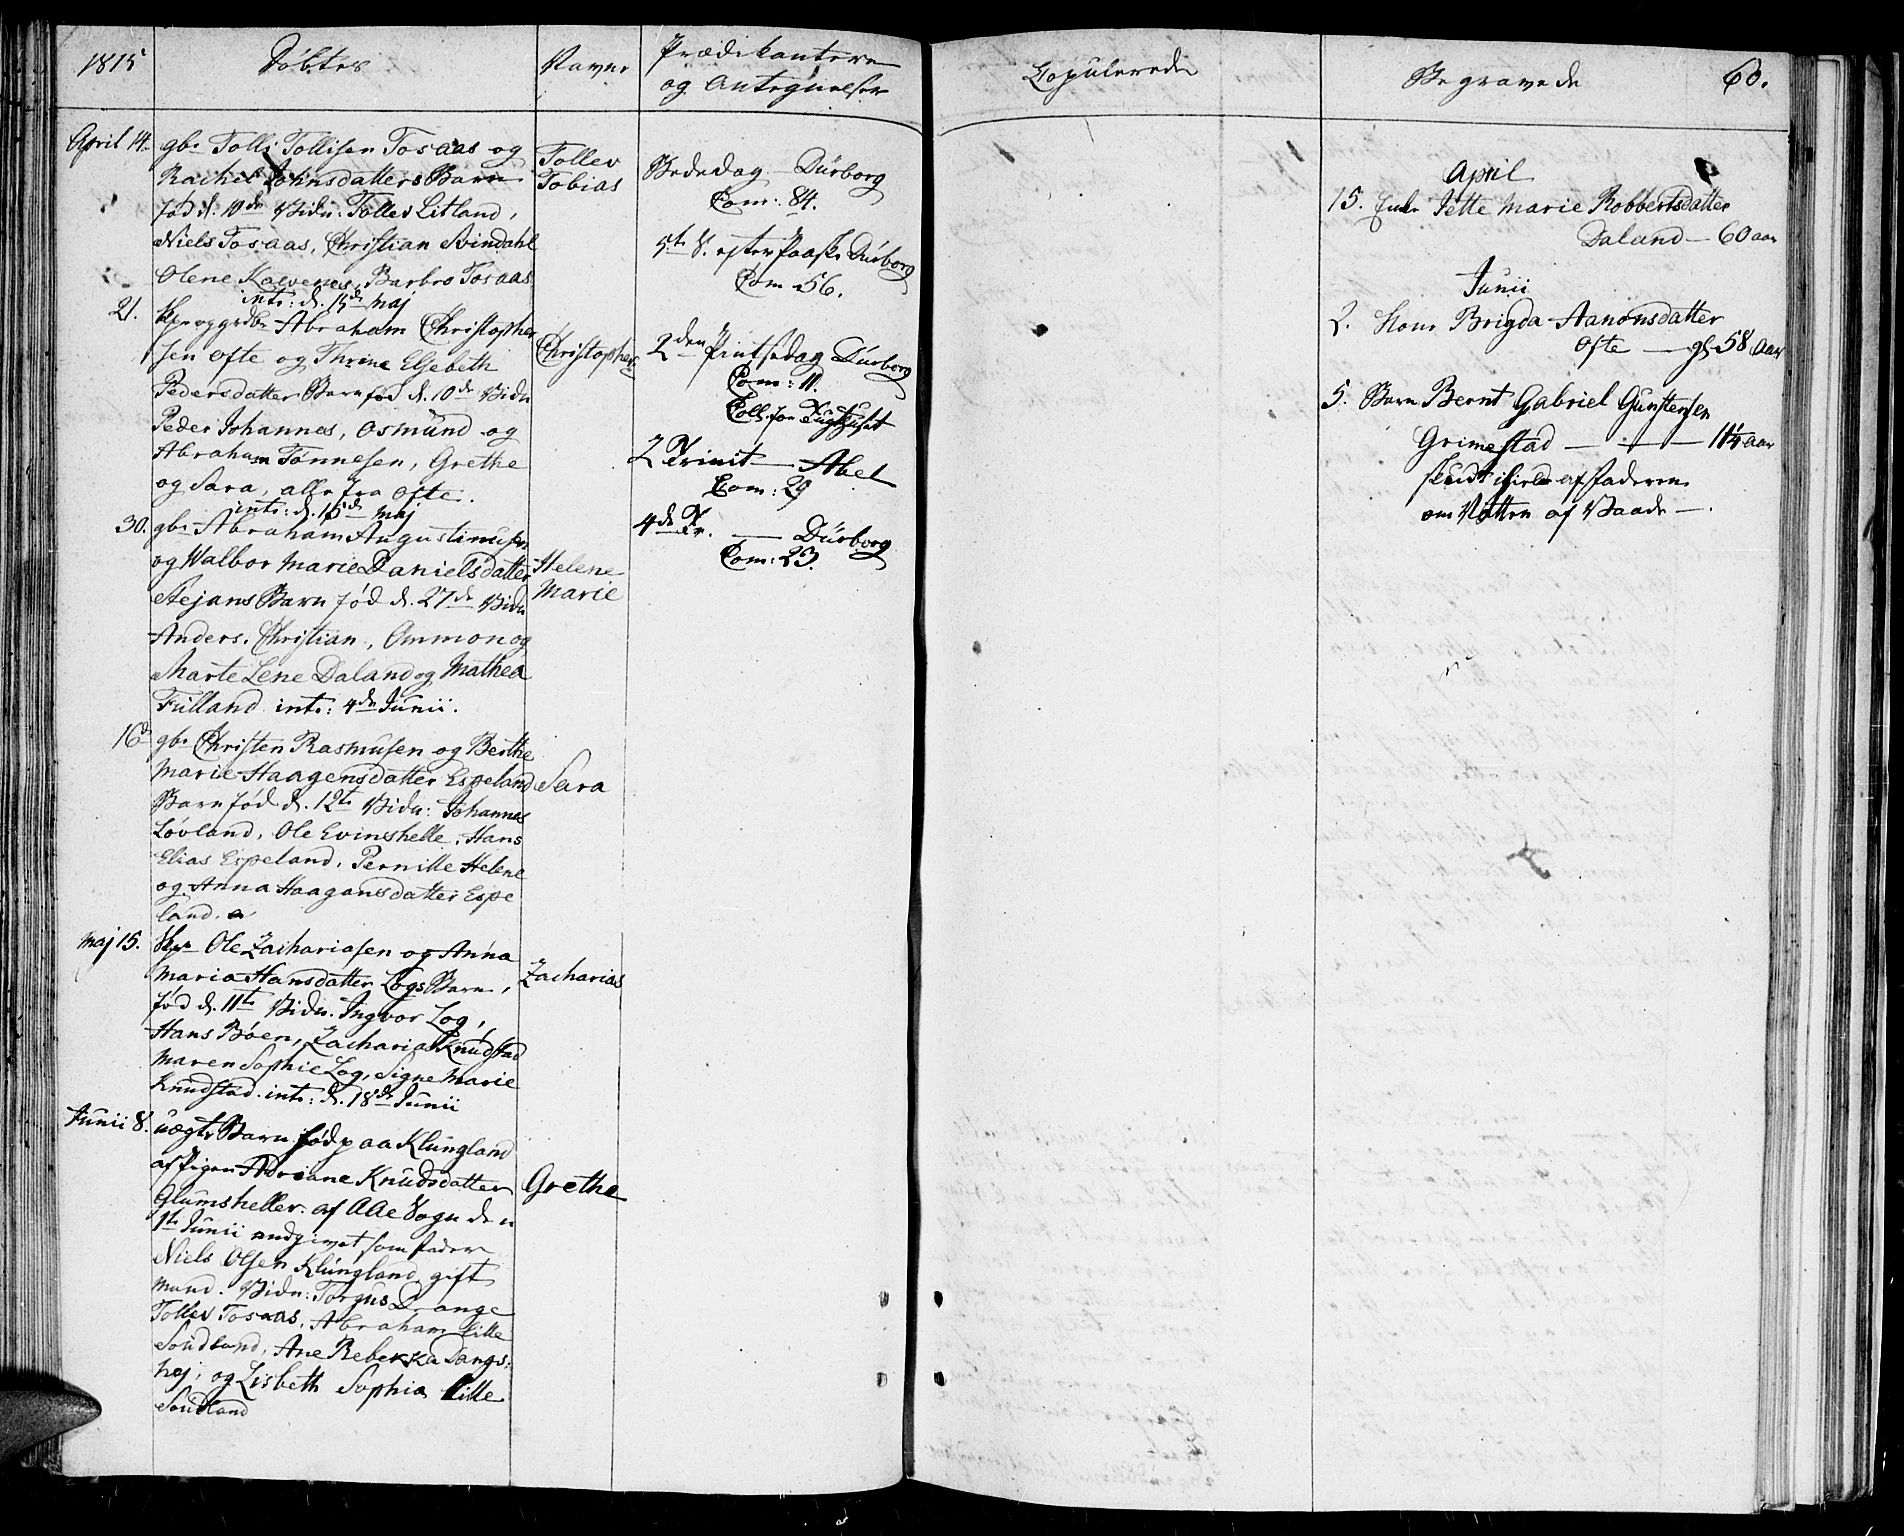 1815
Döbte
Navne
Prædikantere
og Antegnelser
April 14. gbr Tolli Tollisen Tosaas og
Rachel Johnsdatters Barn
fød d. 10de Vidn. Tollev Litland,
Niels Tosaas, Christian Svindahl
Olene Kalvenes, Barbro Tosaas
intr: d. 15de Maj
Tollev
Tobias
21. Abraham Christopher
sen Ofte og Thrine Elsebeth
Pedersdatter Barn fød d. 10de Vidn
Peder Johannes, Osmund og
Abraham Tønnesen, Grethe
og Sara, alle fra Ofte.
intr: d. 15de Maj
Christopher
30. gbr Abraham Augustinusen
og Walbor Marie Danielsdatter
Stejans Barn fød d. 27de Vidn
Anders, Christian, Ammon og
Marte Lene Daland og Mathea
Fulland intr: 4de Junii.
Helene
Marie
16d gbr Christen Rasmusen og Berthe
Marie Haagensdatter Espeland
Barn fød d. 12te Vidn: Johannes
Løvland, Ole Evinshelle, Hans
Elias Espeland, Pernille Helene
og Anna Haagansdatter Espe
land.
Sara
Maj 15. Ole Zachariasen og Anna
Maria Hansdatter Logs Barn,
fød d. 11te Vidn. Ingvor Log,
Hans Bøen, Zacharia Knudstad
Maren Sophie Log, Signe Marie
Knudstad. intr: d. 18de Junii
Zacharias
Junii 8. uægte Barn fød paa Klungland
af Pigen Adriane Knudsdatter
Glumsheller af AAe Sogn den
1te Junii, udgivet som fader
Niels Olsen Klungland gift
mand. Vidn: Torgus Drange
Tollev Tosaas, Abraham Lille
Sudland, Ane Rebekka Dangs:
hej, og Lisbeth Sophia Lille
Sudland
Grethe
Bededag - Dürborg
Com: 84.
5te S. efter Paaske Dürborg
Com 56.
2den Pintsedag Dürborg
Com: 11.
Coll. for Tugthuset
2 Trinit — Abel
Com: 29
4de Tr. — Dürborg
Com: 23.
Copulerede
Begravede
60.
April
15. Enke Jette Marie Robbertsdatter
Daland — 60 aar
Junii
2. Kone Brigda Aanonsdatter
Ofte — gl 58 Aar
5. Barn Bernt Gabriel Gunstensen
Grimestad — 11¼ aar
skudt ihiel af faderen
om Natten af Vaade —.